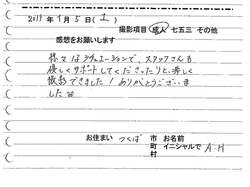 2019年 1月 5日 (土)
撮影項目 成人 七五三 その他
感想をお願いします
様々なシチュエーションで、スタッフさんも
優しくサポートしてくださったりと、楽しく
撮影できました! ありがとうございま
した
お住まい つくば 市 お名前
町 イニシャルで A・H
村